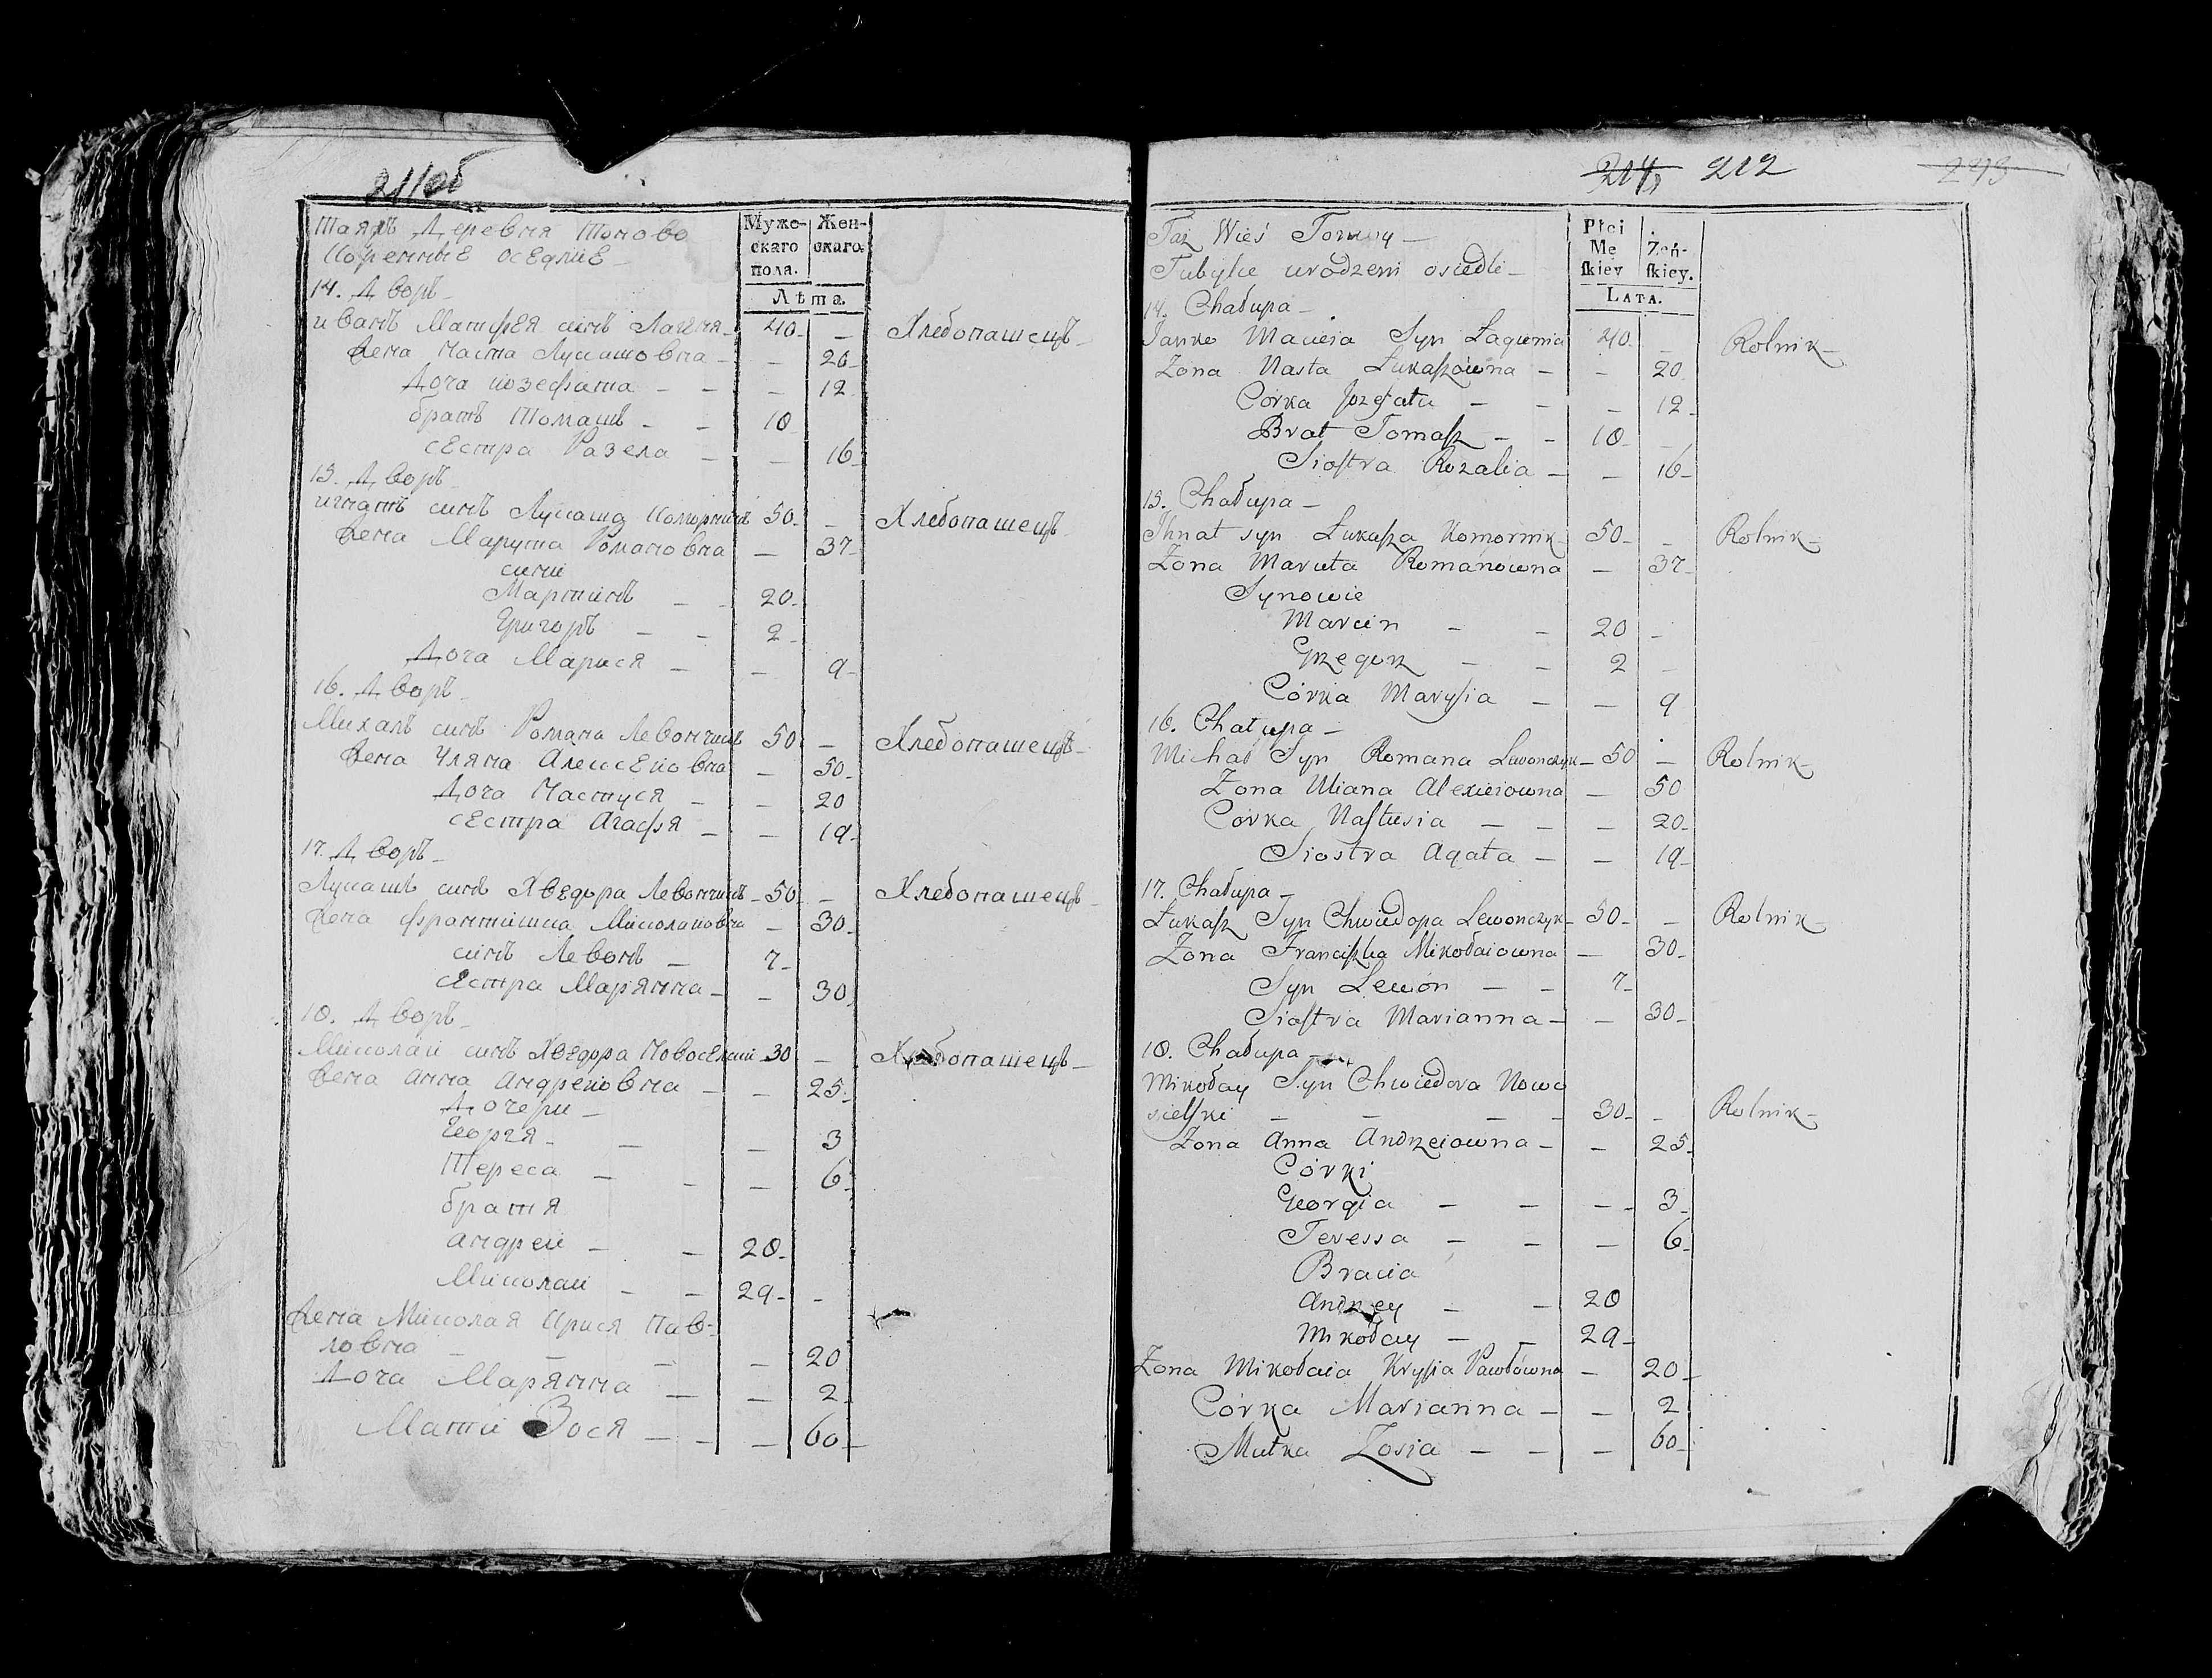 211об
Таяжъ Деревня Тоново
Коренные оседлие
Мужескаго пола.
Женскаго.
Лѣта.
14. Дворъ
иванъ Матфея синъ Лагуня 40 — Хлебопашецъ
Жена Наста Лукашовна — 20
Доча иозефата — 12
братъ Томашъ 18
сестра Разеля — 16
15. Дворъ
игнатъ синъ Лукаша Коморникъ 50 — Хлебопашецъ
Жена Марута Романовна — 37
сини
Мартинъ 20
Григоръ 2
Доча Марися — 9
16. Дворъ
Михалъ синъ Романа Левончикъ 50 — Хлебопашецъ
Жена Уляна Алексеиовна — 50
Доча Настуся — 20
сестра Агафья — 19
17. Дворъ
Лукашъ синъ Хведора Левончикъ 50 — Хлебопашецъ
Жена франтишка Миколаиовна — 30
синъ Левонъ 7
сестра Марянна — 30
18. Дворъ
Миколаи синъ Хведора Новосельскии 30 — Хлебопашецъ
Жена анна андреиовна — 25
Дочери
Георгя — 3
Тереса — 6
братя
андреи 28
Миколаи 29 —
Жена Миколая Крися Пав-
ловна — 20
Доча Марянна — 2
Мати Зося — 60
214 212 293
Taż Wieś Tonowy
Tubylce urodzeni osiedli
Płci Męſkiey
Żeńſkiey.
LATA.
14. Chałupa
Janko Macieia Syn Łagunia 40 — Rolnik
Zona Nasta Łukaſzówna — 20
Córka Jozefata — 12
Brat Tomaſz 18 —
Sioſtra Rozalia — 16
15. Chałupa
Ihnat syn Łukaſza Komornik 50 — Rolnik
Zona Maruta Romanówna — 37
Synowie
Marcin 20 —
Grzegorz 2 —
Córka Maryſia — 9
16. Chałupa
Michał Syn Romana Lewonczyk 50 — Rolnik
Zona Uliana Alexieiowna — 50
Córka Naſtusia — 20
Siostra Agata — 19
17. Chałupa
Łukaſz Syn Chwiedora Lewonczyk 50 — Rolnik
Zona Franciſzka Mikołaiowna — 30
Syn Lewón 7
Sioſtra Marianna — 30
18. Chałupa
Mikołay Syn Chwiedora Nowo
sielſki 30 — Rolnik
Zona Anna Andrzeiowna — 25
Córki
Georgia — 3
Teressa — 6
Bracia
Andrzey 28
Mikołay 29
Zona Mikołaia Kryſia Pawłówna — 20
Córka Marianna — 2
Matka Zosia — 60